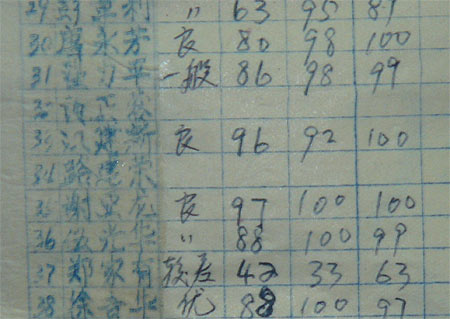 29 利 〃 63 95 81
30 廖永芳 良 80 98 100
31 平 一般 86 98 99
32
33 江建新 良 96 92 100
34 路建荣
35 谢 良 97 100 100
36 光华 〃 88 100 99
37 郑家有 较差 42 33 63
38 徐 华 优 88 100 97